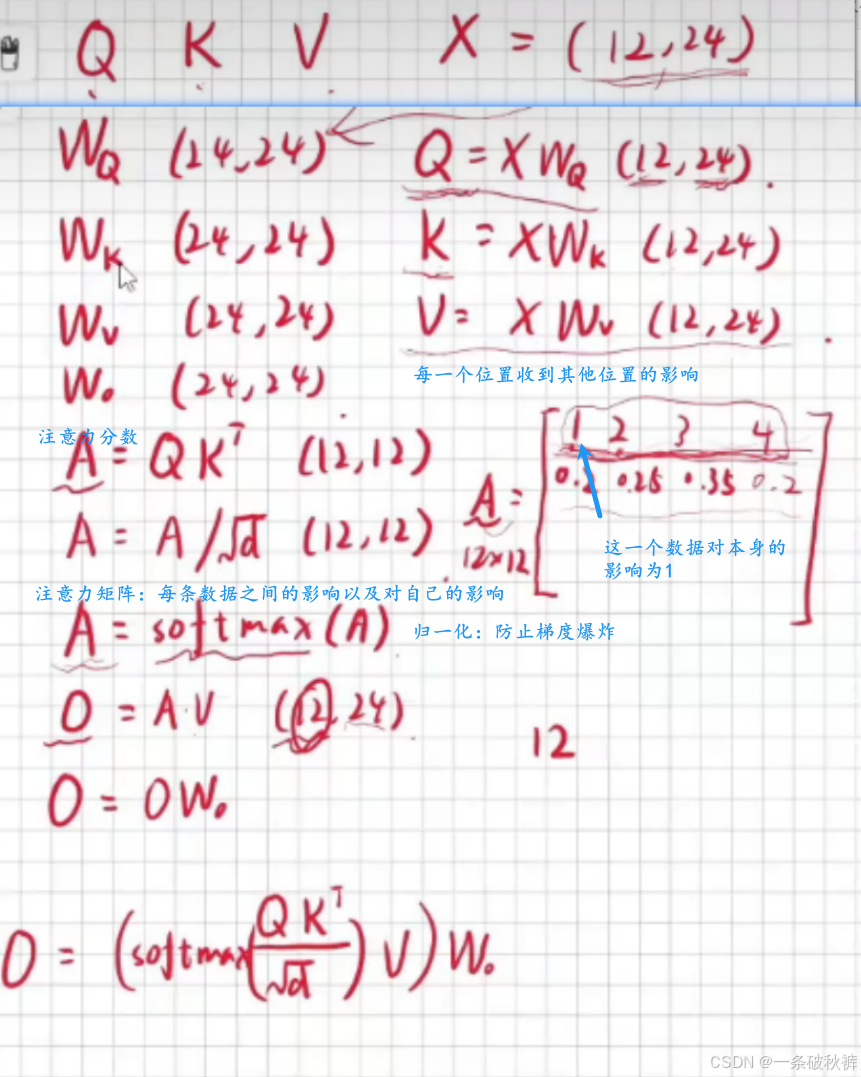 Q K V X = (12,24)
W_Q (24,24) Q = XW_Q (12,24).
W_K (24,24) K = XW_K (12,24)
W_V (24,24) V = XW_V (12,24)
W_o (24,24)
每一个位置收到其他位置的影响
注意力分数
A = QK^T (12,12)
A = A/√d (12,12)
A = 12×12
1 2 3 4
0.2 0.25 0.35 0.2
这一个数据对本身的
影响为1
注意力矩阵：每条数据之间的影响以及对自己的影响
A = softmax(A)
归一化：防止梯度爆炸
O = A·V (12,24)
12
O = OW_o
O = (softmax(QK^T/√d)V)W_o
CSDN @一条破秋裤